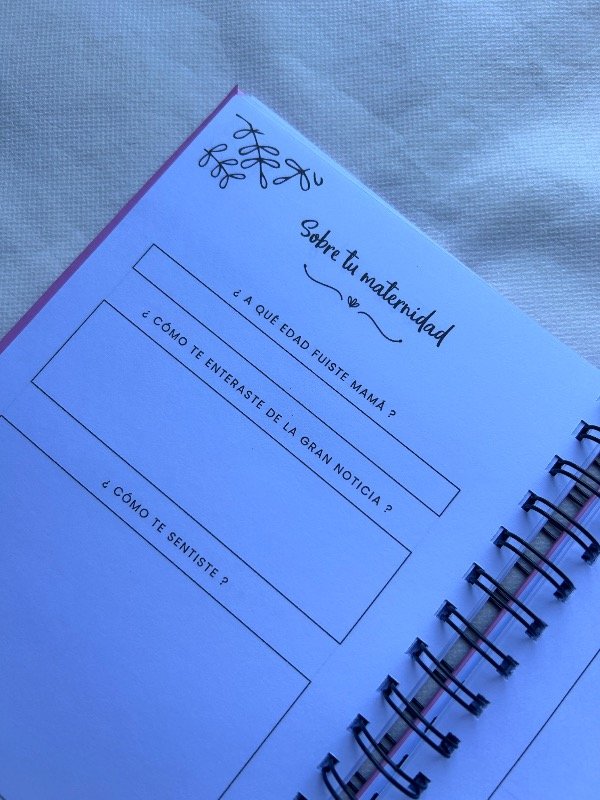 Sobre tu maternidad
¿ A QUÉ EDAD FUISTE MAMÁ ?
¿ CÓMO TE ENTERASTE DE LA GRAN NOTICIA ?
¿ CÓMO TE SENTISTE ?